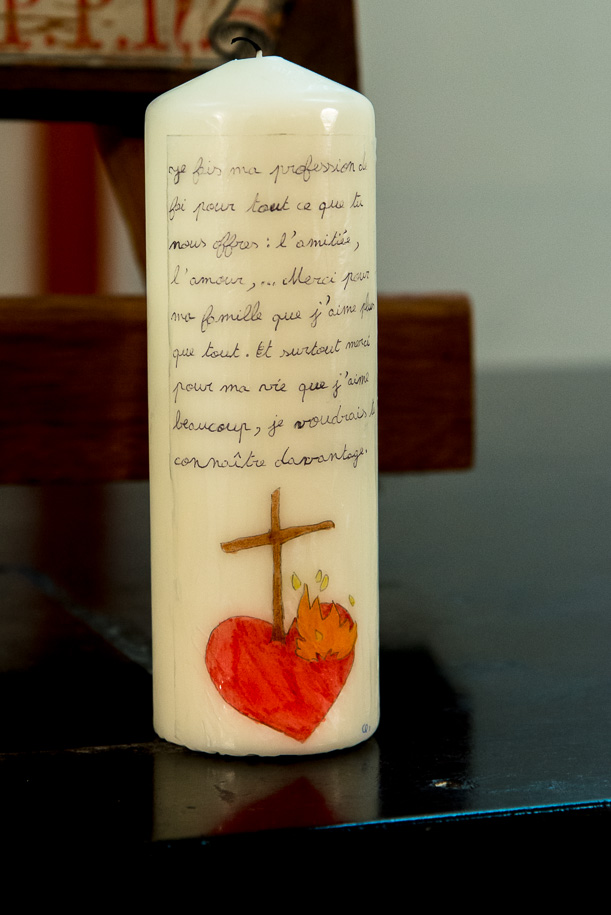 P.P.I.
Je fais ma profession de
foi pour tout ce que tu
nous offres : l'amitiée,
l'amour,... Merci pour
ma famille que j'aime plus
que tout. Et surtout merci
pour ma vie que j'aime
beaucoup, je voudrais t
connaître davantage.